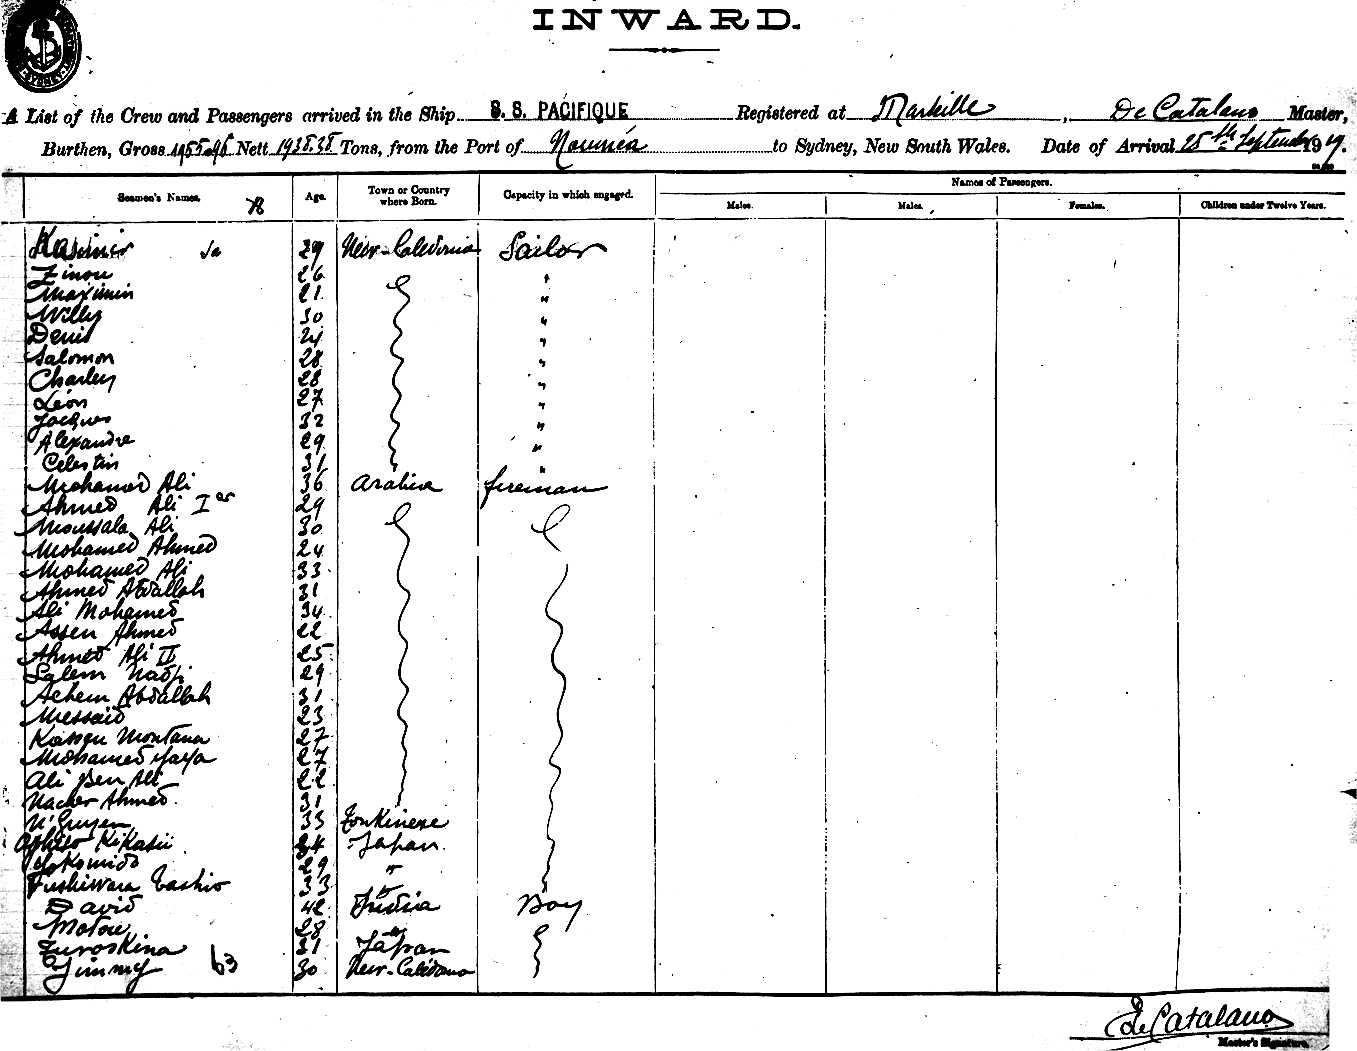 INWARD.
A List of the Crew and Passengers arrived in the Ship S. S. PACIFIQUE Registered at Marseille, De Catalano Master,
Burthen, Gross Nett 1938.38 Tons, from the Port of Nouméa to Sydney, New South Wales. Date of Arrival 25th September 19
Seamen's Names. Age. Town or Country where Born. Capacity in which engaged. Names of Passengers.
Males. Males. Females. Children under Twelve Years.
Kasimir 29 New-Caledonia Sailor
Zinou 26 "
Maximin 21 "
Willy 30 "
Denis 24 "
Salomon 28 "
Charley 28 "
Léon 27 "
Jacques 32 "
Alexandre 29 "
Celestin 31 "
Mohamed Ali 36 Arabia fireman
Ahmed Ali Ier 29
Moussala Ali 30
Mohamed Ahmed 24
Mohamed Ali 33
Ahmed Abdallah 31
Ali Mohamed 34
Assen Ahmed 22
Ahmed Ali II 25
Salem Nadji 29
Achem Abdallah 31
Messaid 23
Kassem Montana 27
Mohamed Yaya 27
Ali Ben Ali 22
Nacher Ahmed 31
N'Guyen 33 Tonkinese
Kikasu 34 Japan
Yokomido 29 "
Fushiwara Tashio 33 "
David 42 India Boy
Motou 28 "
Zuroskina 31 Japan
Jimmy 63 30 New-Calédonia
De Catalano
Master's Signature.